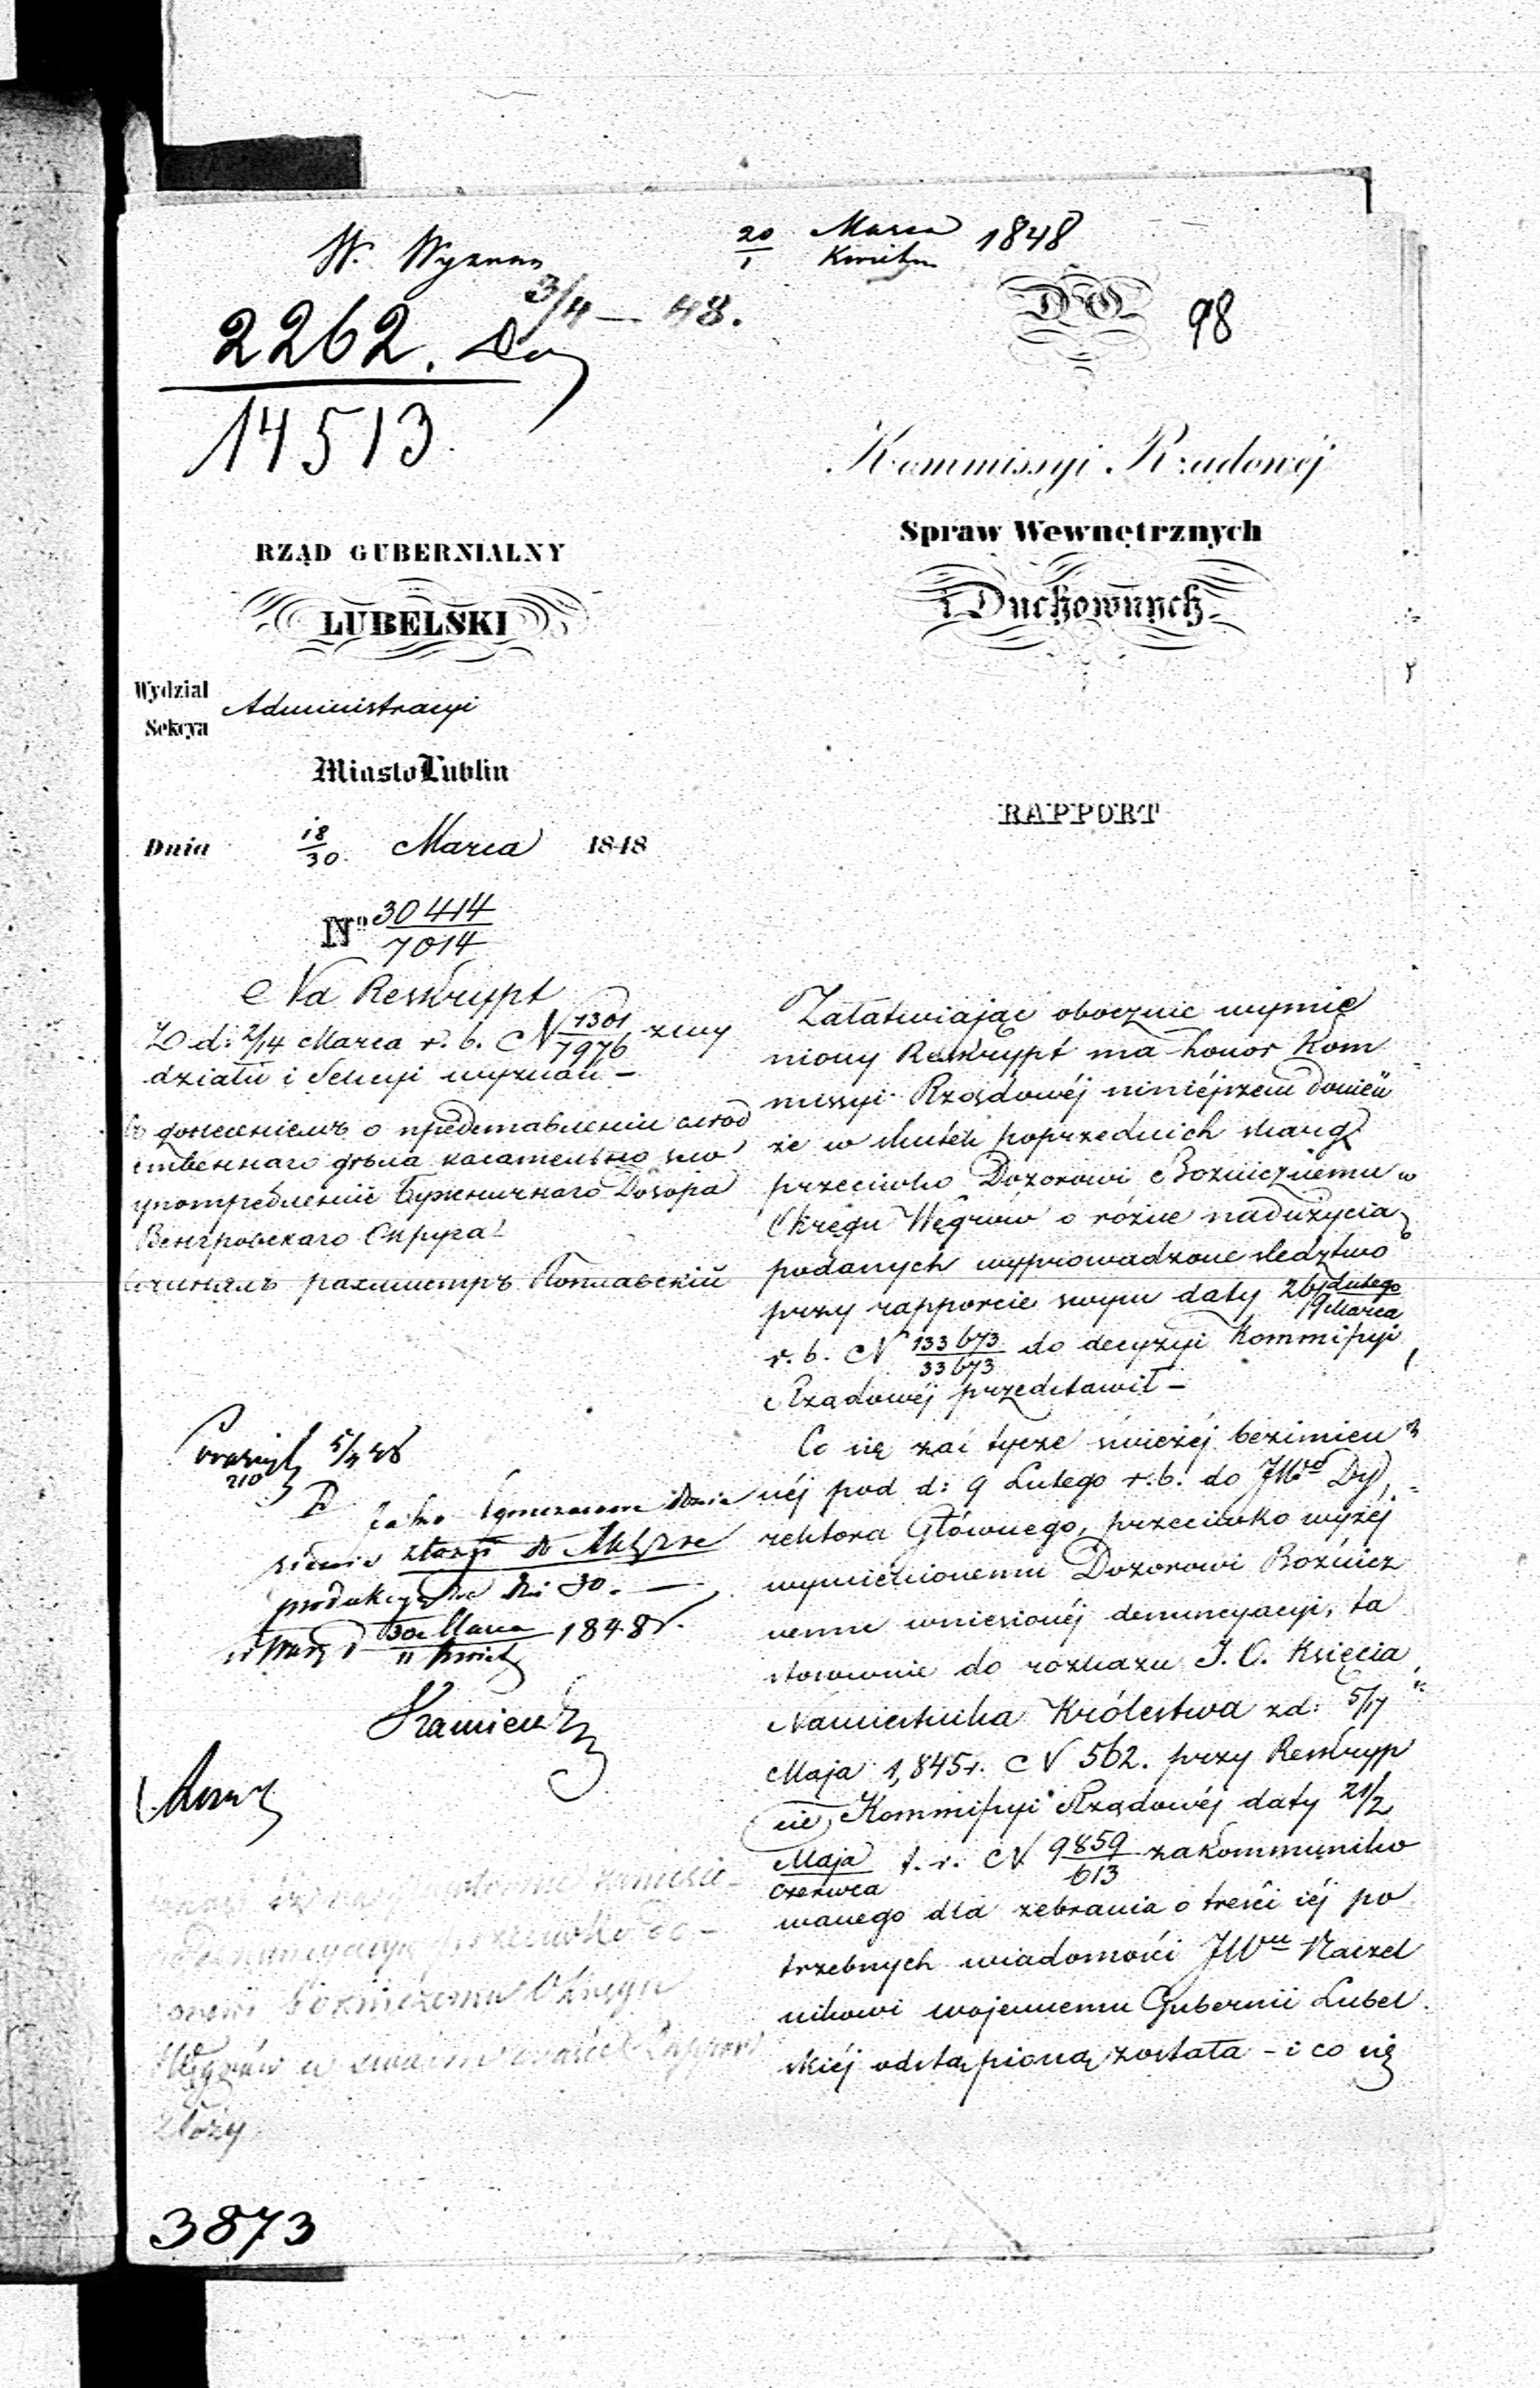 W. Wyznań
3/4 — 48.
2262.
14513.
20 Marca
1 Kwietn 1848
DO
98
Kommissyi Rządowéj
Spraw Wewnętrznych
i Duchownych
RZĄD GUBERNIALNY
LUBELSKI
Wydział
Sekcya
Administracyi
Miasto Lublin
Dnia 18/30 Marca 1848
RAPPORT
No 30414/7014
Na Reskrypt
Z d: 2/14 Marca r. b. N 1301/7976 z wy
działu i Sekcyi wyznań –
съ донесеніемъ о представленіи слѣд
ственнаго дѣла касательно зло
употребленій Божничнаго Дозора
Венгровскаго Округа
Сочинялъ рахмистръ Поплавскій
Załatwiając obocznie wymie
niony Reskrypt ma honor Kom
missyi Rządowéj niniéjszem donieść
że w skutek poprzednich skarg
przeciwko Dozorowi Bożniczniemu w
Okręgu Węgrów o różne nadużycia
podanych wyprowadzone sledztwo
przy rapporcie swym daty 26 Lutego/9 Marca
r. b. N 133673/33673 do decyzyi Kommissyi
Rządowéj przedstawił –
Co się zaś tycze świeżéj bezimien
néj pod d: 9 Lutego r. b. do JWgo Dy
rektora Głównego, przeciwko wyżéj
wymienionemu Dozorowi Bożnicz
nemu wniesionéj denuncyacyi, ta
stosownie do rozkazu J. O. Księcia
Namiestnika Królestwa z d: 5/17
Maja 1,845 r. N 562. przy Reskryp
cie Kommissyi Rządowéj daty 21/2
Maja/Czerwca t. r. N 9859/613 zakommuniko
wanego dla zebrania o treści iéj po
trzebnych wiadomości JWmu Naczel
nikowi wojennemu Gubernii Lubel
skiéj odstąpioną została – i co się
5/4 48
210
Jako tymczasowe donie
sienie złożyć do Akt
produkcya dni 30. —
w Warsz d 30 Marca/11 Kwiet 1848 r.
zaniesio
denuncyacyą przeciwko Do–
zorowi Bożniczemu Okręgu
Węgrów w swoim czasie Rapport
złoży
3873